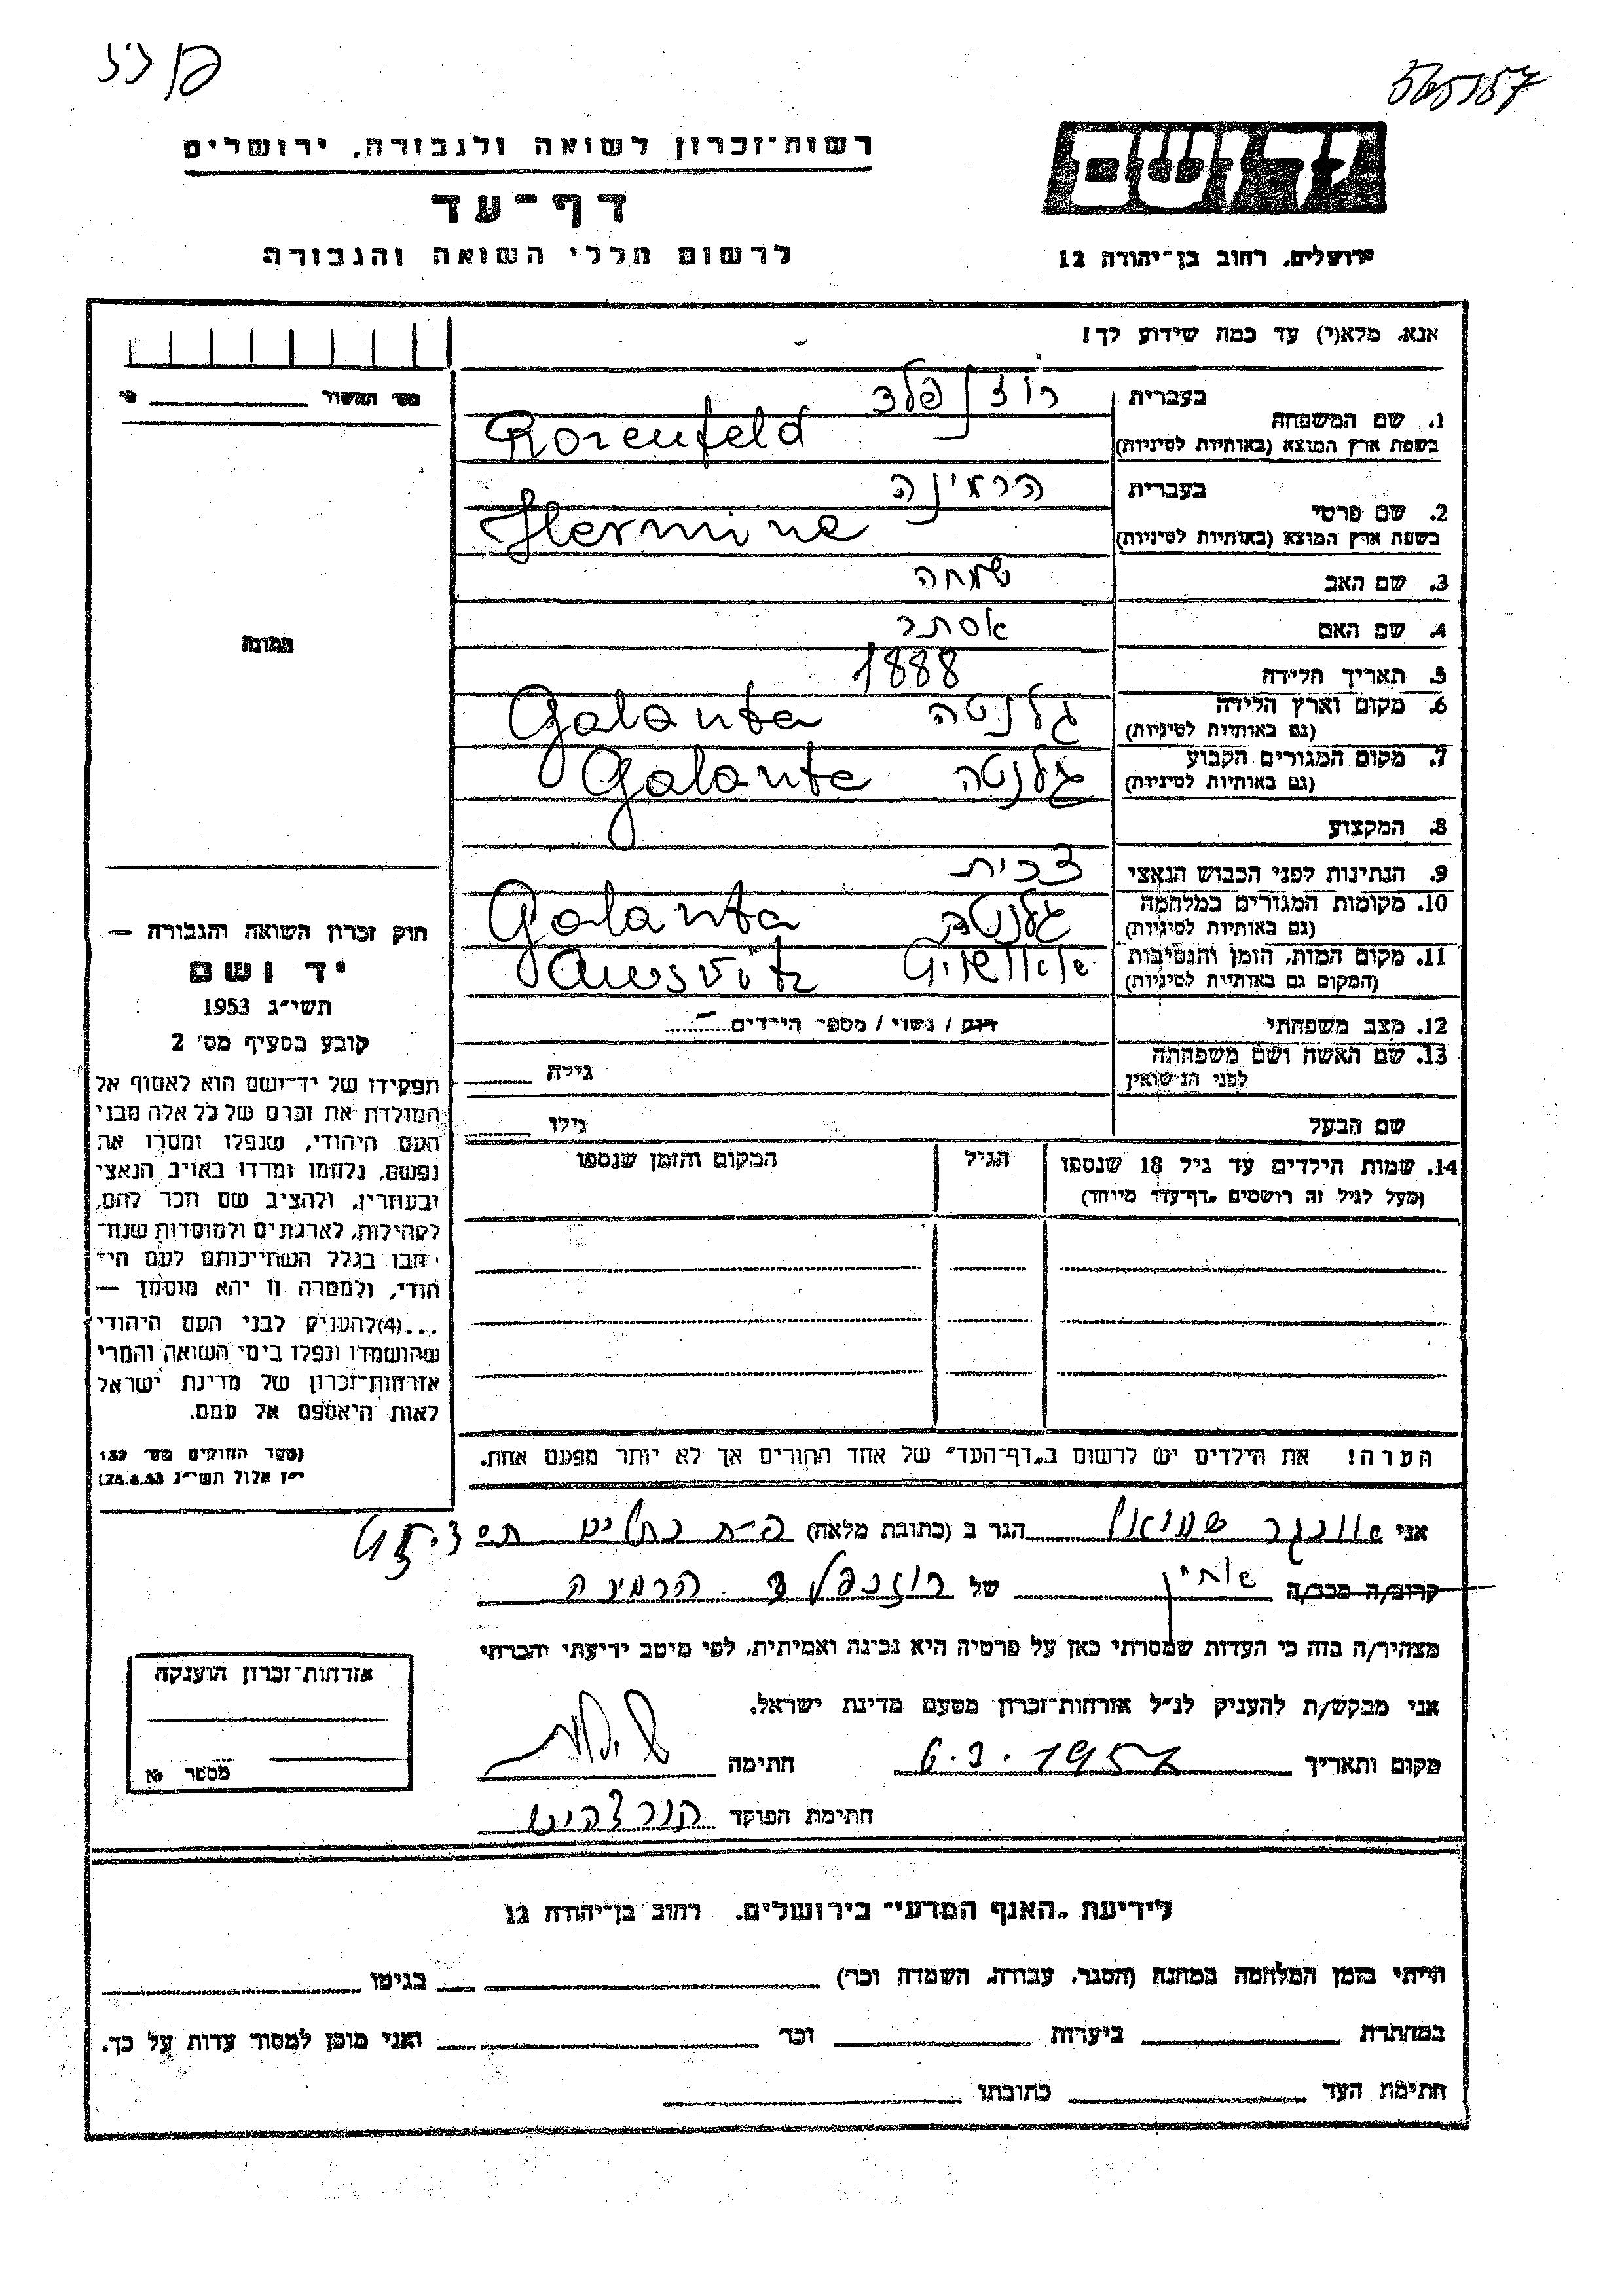 רשות־זכרון לשואה ולגבורה, ירושלים
דף־עד
לרשום חללי השואה והגבורה
ידושם
ירושלים, רחוב בן־יהודה 12
אנא, מלא(י) עד כמה שידוע לך!
1. שם המשפחה בעברית רוזנפלד
בשפת ארץ המוצא (באותיות לטיניות) Rozenfeld
2. שם פרטי בעברית הרמינה
בשפת ארץ המוצא (באותיות לטיניות) Hermine
3. שם האב שמחה
4. שם האם אסתר
5. תאריך הלידה 1888
6. מקום וארץ הלידה (גם באותיות לטיניות) גלנטה Galanta
7. מקום המגורים הקבוע (גם באותיות לטיניות) גלנטה Galanta
8. המקצוע
9. הנתינות לפני הכבוש הנאצי צ'כית
10. מקומות המגורים במלחמה (גם באותיות לטיניות) גלנטה Galanta
11. מקום המות, הזמן והנסיבות (המקום גם באותיות לטיניות) Ausvitz
12. מצב משפחתי רווק / נשוי / מספר הילדים
13. שם האשה ושם משפחתה לפני הנישואין גילה
שם הבעל גילו
14. שמות הילדים עד גיל 18 שנספו הגיל המקום והזמן שנספו
(מעל לגיל זה רושמים „דף־עד" מיוחד)
הערה! את הילדים יש לרשום ב„דף־העד" של אחד ההורים אך לא יותר מפעם אחת.
מס' האשור
תמונה
חוק זכרון השואה והגבורה —
יד ושם
תשי"ג 1953
קובע בסעיף מס' 2
תפקידו של יד־ושם הוא לאסוף אל
המולדת את זכרם של כל אלה מבני
העם היהודי, שנפלו ומסרו את
נפשם, נלחמו ומרדו באויב הנאצי
ובעוזריו, ולהציב שם וזכר להם,
לקהילות, לארגונים ולמוסדות שנח־
רבו בגלל השתייכותם לעם הי־
הודי, ולמטרה זו יהא מוסמך —
...(4) להעניק לבני העם היהודי
שהושמדו ונפלו בימי השואה והמרי
אזרחות־זכרון של מדינת ישראל
לאות היאספם אל עמם.
(ספר החוקים מס' 132
י"ז אלול תשי"ג 28.8.53)
אני אונגר שמואל הגר ב (כתובת מלאה)
קרוב/ה מכר/ה של רוזנפלד הרמינה
מצהיר/ה בזה כי העדות שמסרתי כאן על פרטיה היא נכונה ואמיתית, לפי מיטב ידיעתי והכרתי
אני מבקש/ת להעניק לנ"ל אזרחות־זכרון מטעם מדינת ישראל.
מקום ותאריך חתימה
חתימת הפוקד
אזרחות־זכרון הוענקה
מספר №
לידיעת „האגף המדעי" בירושלים, רחוב בן־יהודה 12
הייתי בזמן המלחמה במחנה (הסגר, עבודה, השמדה וכר') בגיטו
במחתרת ביערות וכר' ואני מוכן למסור עדות על כך.
חתימת העד כתובתו